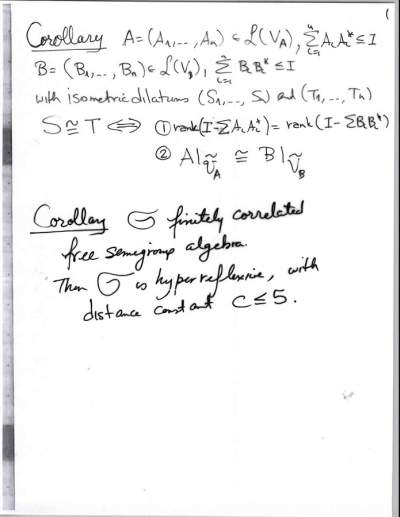 1
Corollary A=(A₁,..,Aₙ) ∈ L(V_A), Σᵢ₌₁ⁿ AᵢAᵢ* ≤ I
B=(B₁,..,Bₙ) ∈ L(V_B), Σᵢ₌₁ⁿ BᵢBᵢ* ≤ I
with isometric dilations (S₁,..,Sₙ) and (T₁,..,Tₙ)
S ≅ T ⟺ ① rank(I-ΣAᵢAᵢ*) = rank(I-ΣBᵢBᵢ*)
② A|_Ṽ_A ≅ B|_Ṽ_B
Corollary 𝔖 finitely correlated
free semigroup algebra.
Then 𝔖 is hyperreflexive, with
distance constant C ≤ 5.